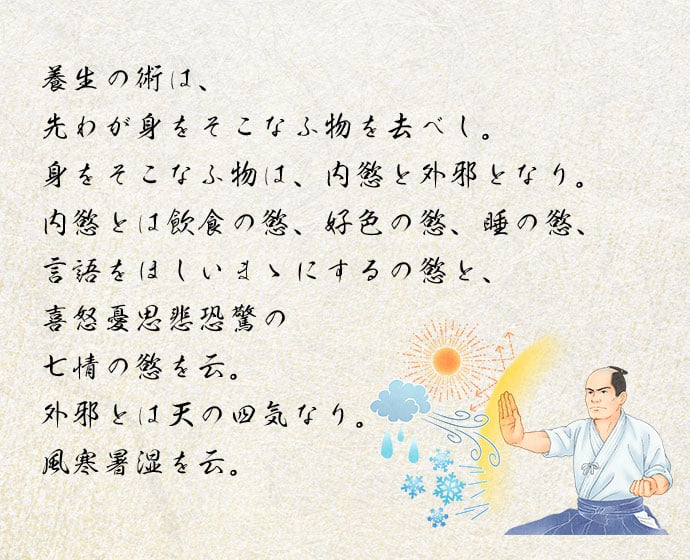 養生の術は、
先わが身をそこなふ物を去べし。
身をそこなふ物は、内慾と外邪となり。
内慾とは飲食の慾、好色の慾、睡の慾、
言語をほしいまゝにするの慾と、
喜怒憂思悲恐驚の
七情の慾を云。
外邪とは天の四気なり。
風寒暑湿を云。